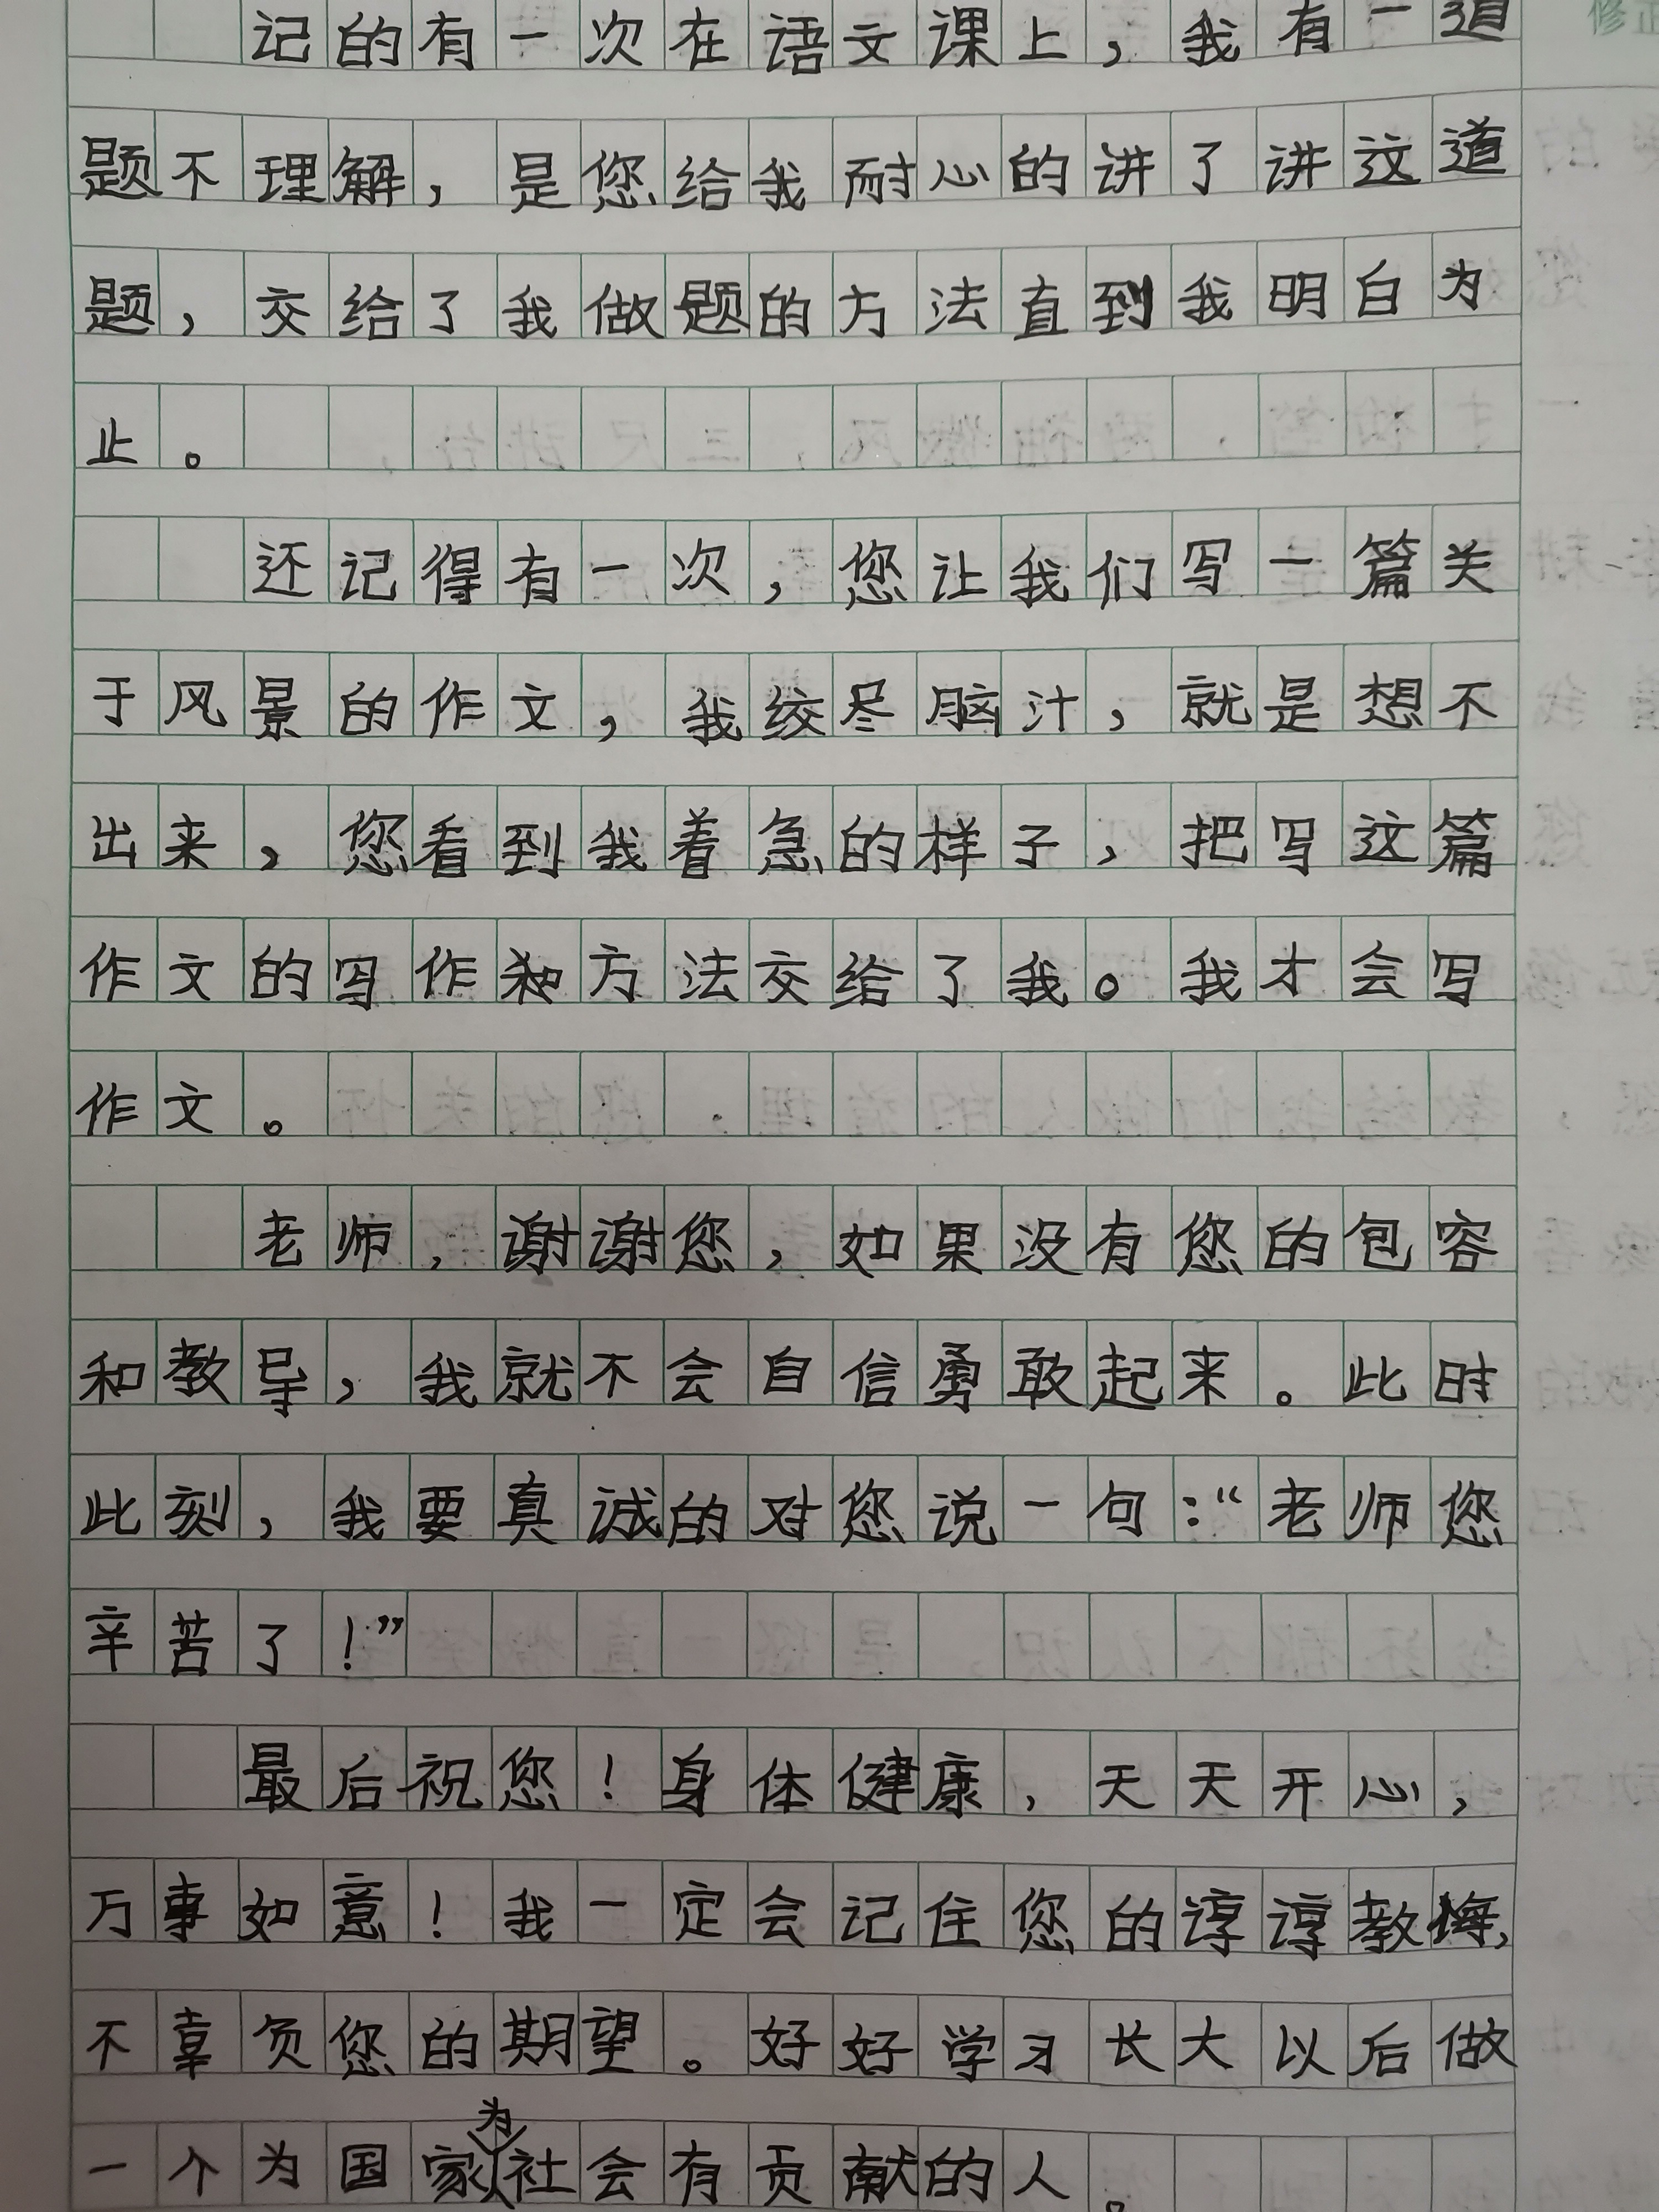 记的有一次在语文课上，我有一道
题不理解，是您给我耐心的讲了讲这道
题，交给了我做题的方法直到我明白为
止。
还记得有一次，您让我们写一篇关
于风景的作文，我绞尽脑汁，就是想不
出来，您看到我着急的样子，把写这篇
作文的写作和方法交给了我。我才会写
作文。
老师，谢谢您，如果没有您的包容
和教导，我就不会自信勇敢起来。此时
此刻，我要真诚的对您说一句：“老师您
辛苦了！”
最后祝您！身体健康，天天开心，
万事如意！我一定会记住您的谆谆教悔，
不辜负您的期望。好好学习长大以后做
一个为国家为社会有贡献的人。